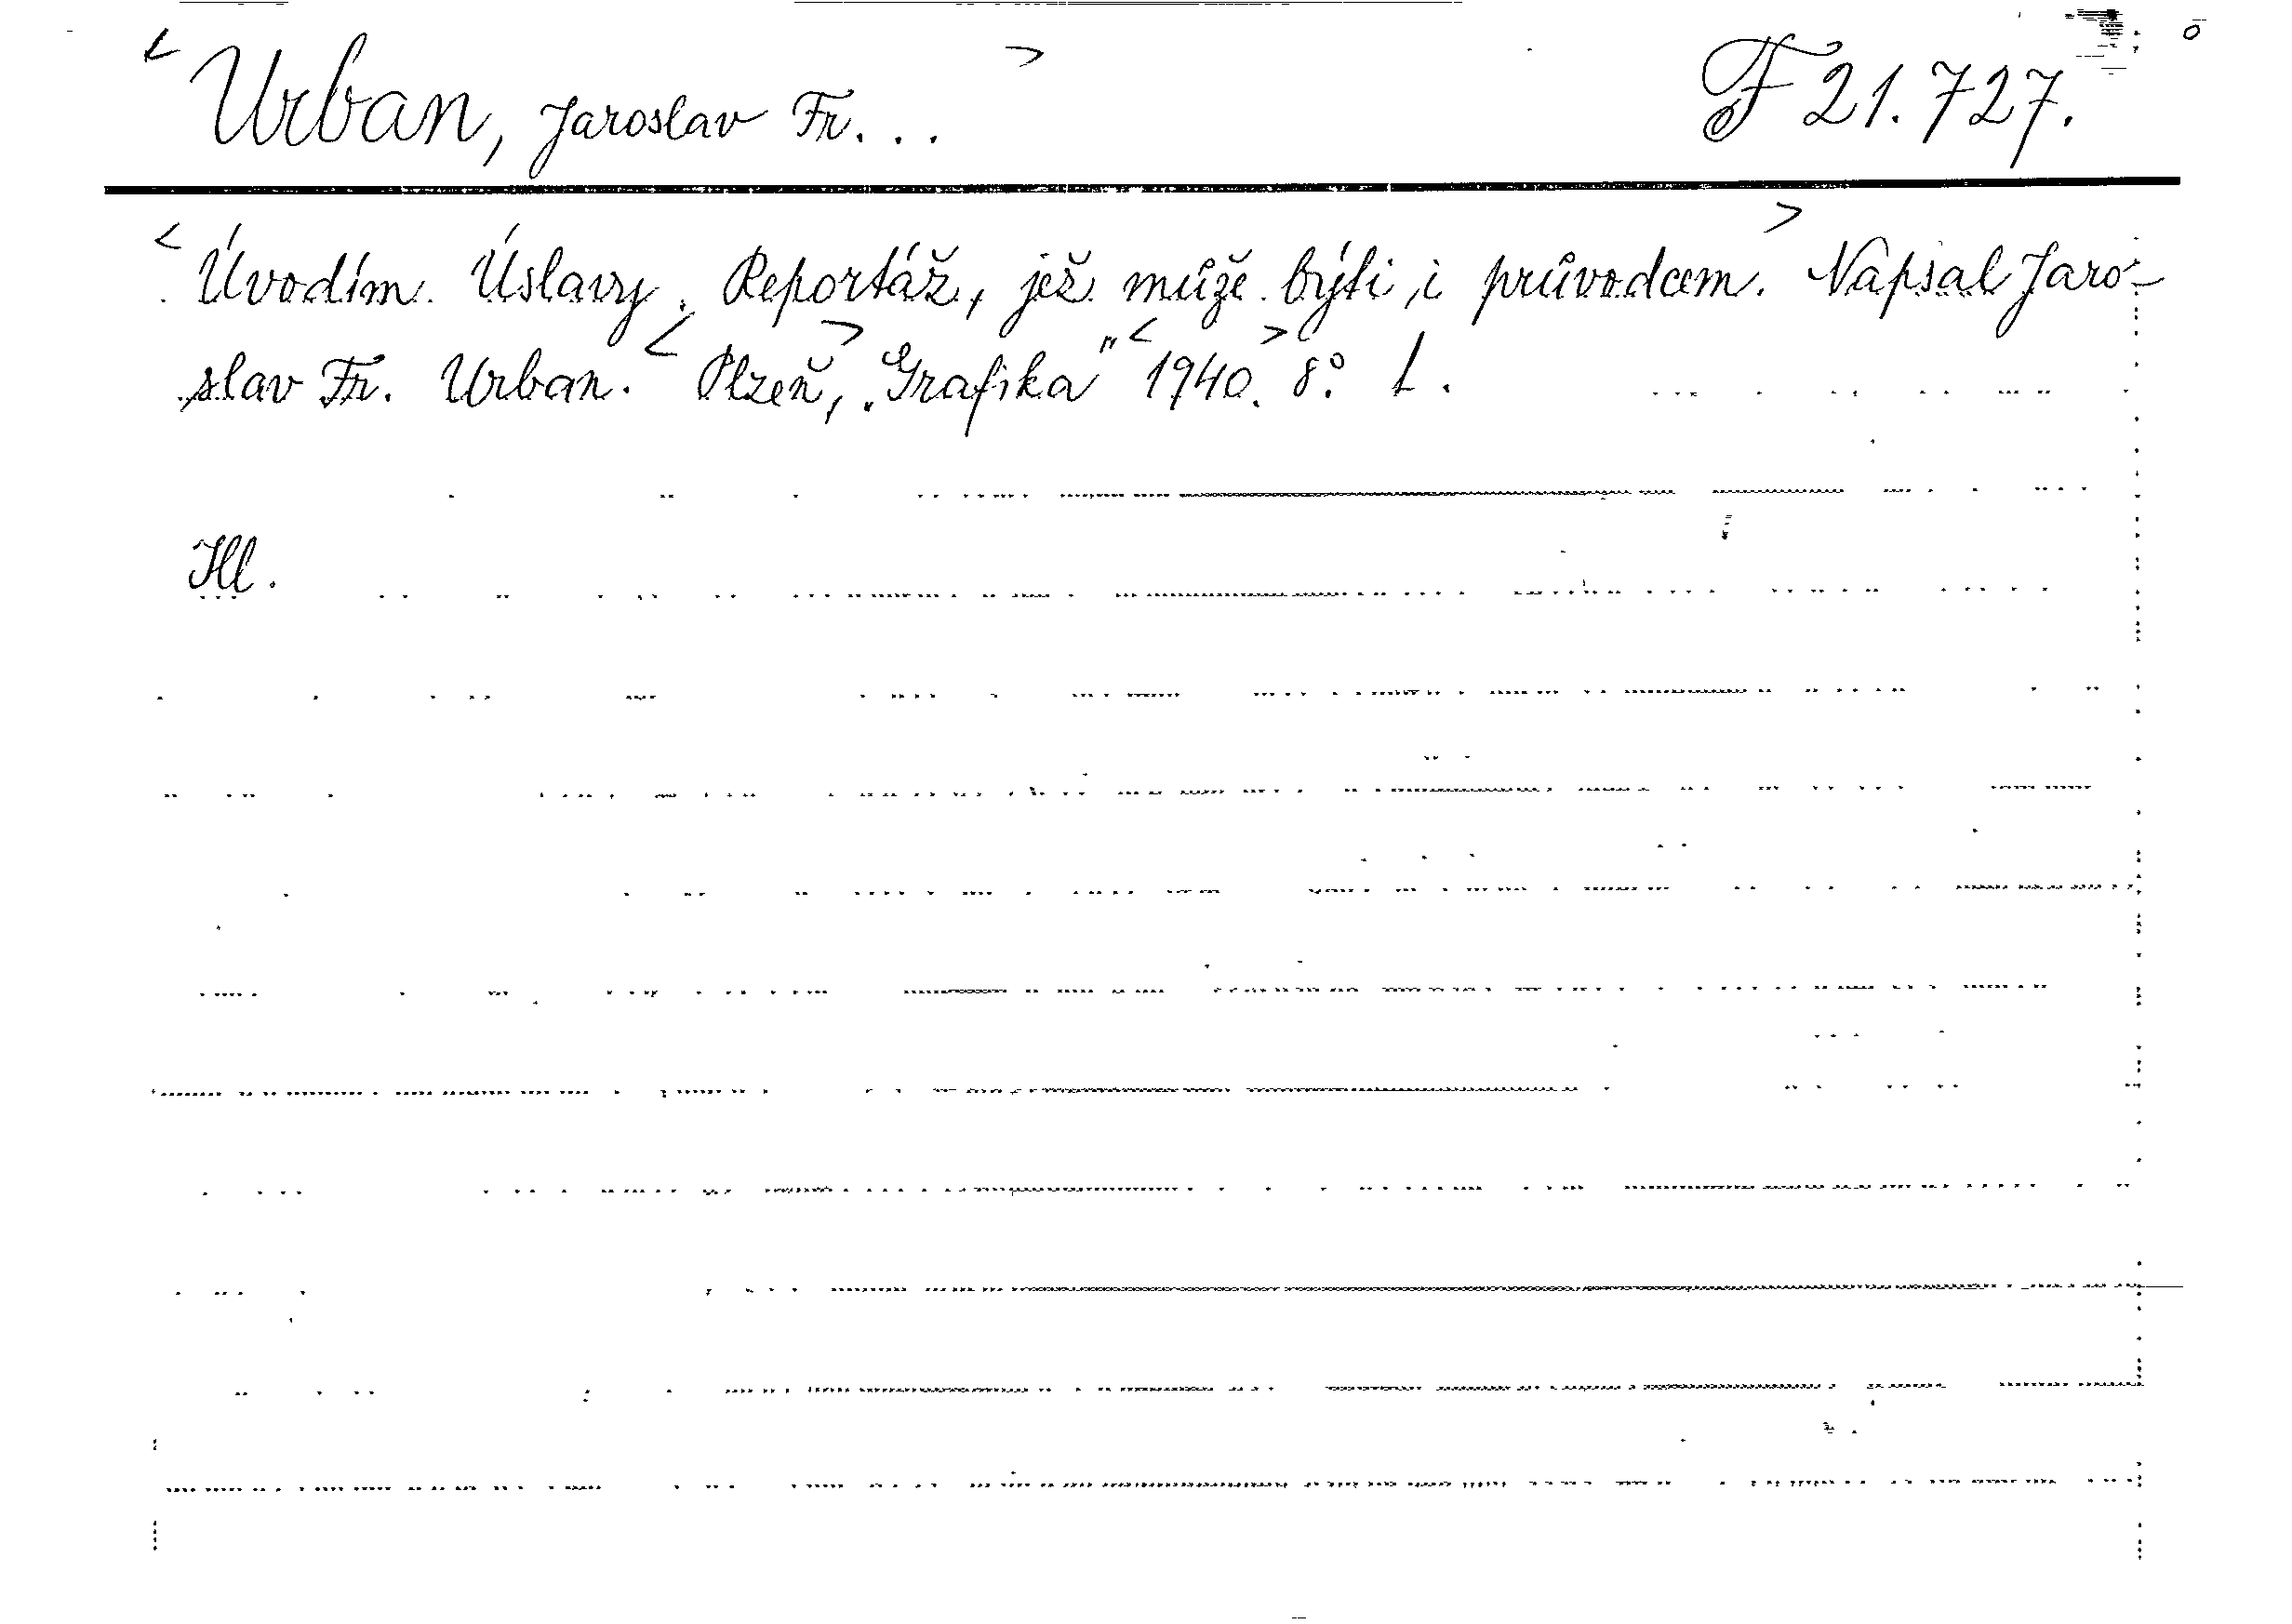 <Urban, Jaroslav Fr...> F 21.727.
<Úvodím Úslavy. Reportáž, jež může býti i průvodcem.> Napsal Jaro-
slav Fr. Urban. <Plzeň,> „Grafika" <1940.> 8°. L.
Hl.